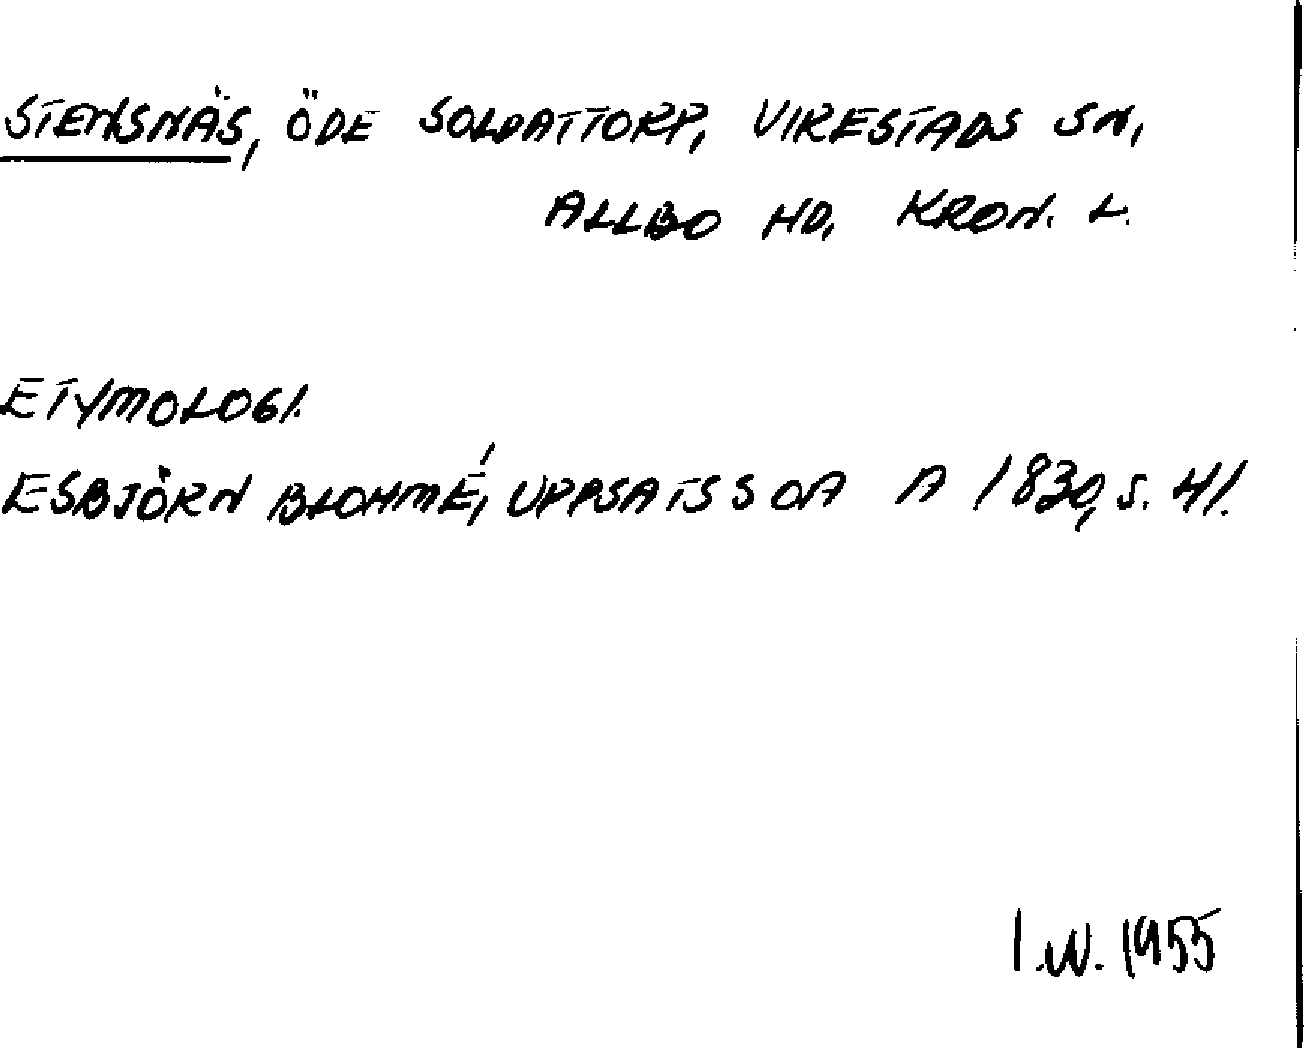 STENSNÄS, ÖDE SOLDATTORP, VIRESTADS SN,
ALLBO HD, KRON. L.
ETYMOLOGI.
ESBJÖRN BLOHMÉ, UPPSATS SOA A 1830, S. 41.
I.W. 1955